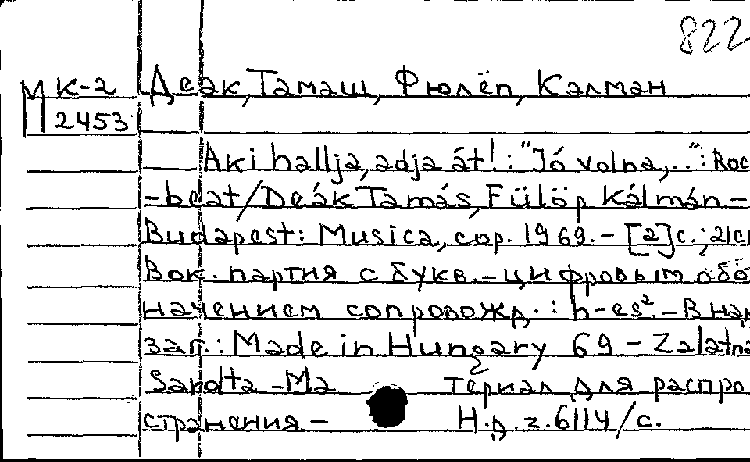 822
МК-2 Деак, Тамаш, Фюлёп, Калман
П 2453
Aki hallja, adja át! : "Jó volna,..." : Roc
-beat/Deák Tamás, Fülöp Kálmán-
Budapest: Musica, cop. 1969.- [2]с.; 21с
Вок. партия с букв.-цифровым обо
начением сопровожд.: h-es². - В нар
заг.: Made in Hungary 69 - Zalatna
Sarolta - Ма териал для распро
странения - Н.д. z.6114/с.